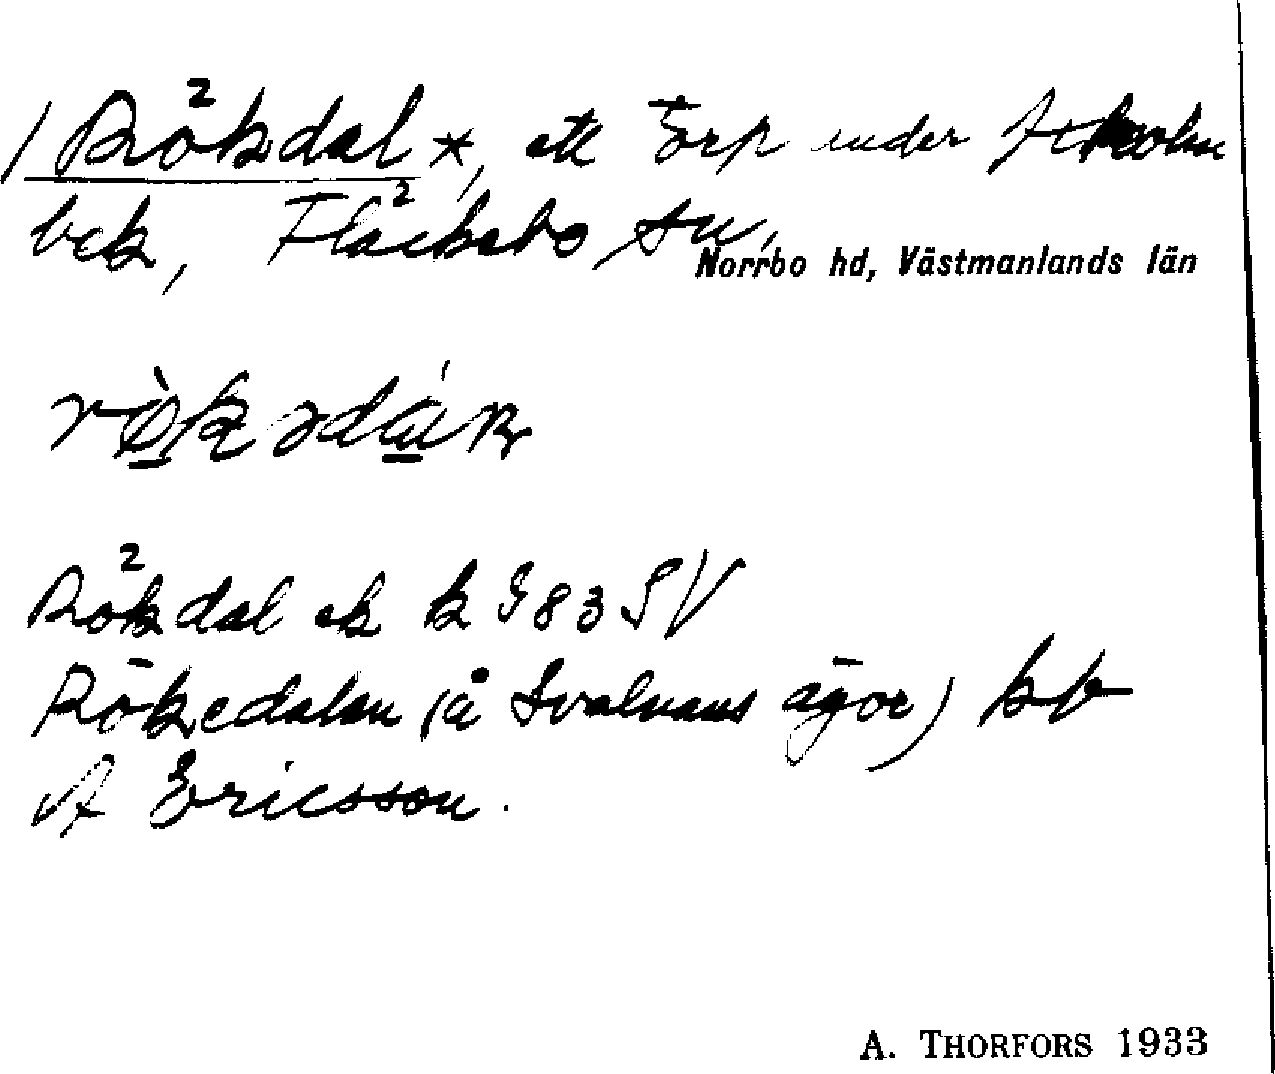 / Rökdal *, ett torp under
bek, Fläckebo sn,
Norrbo hd, Västmanlands län
rö̀kədáR
Rökdal ek k G 83 SV
Rökedalen (å Svalnans ägor) kb
A Ericsson.
A. THORFORS 1933